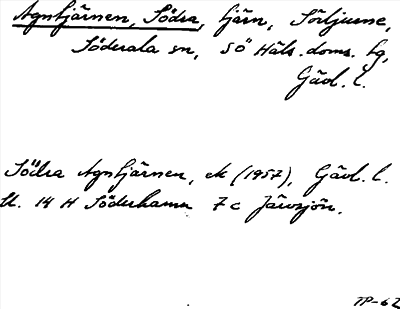 Agntjärnen, Södra, tjärn, Sörljusne,
Söderala sn, SÖ Häls. doms. tg,
Gävl. l.
Södra Agntjärnen, ek (1957), Gävl. l.
bl. 14 H Söderhamn 7 c Järvsjön.
TP-62